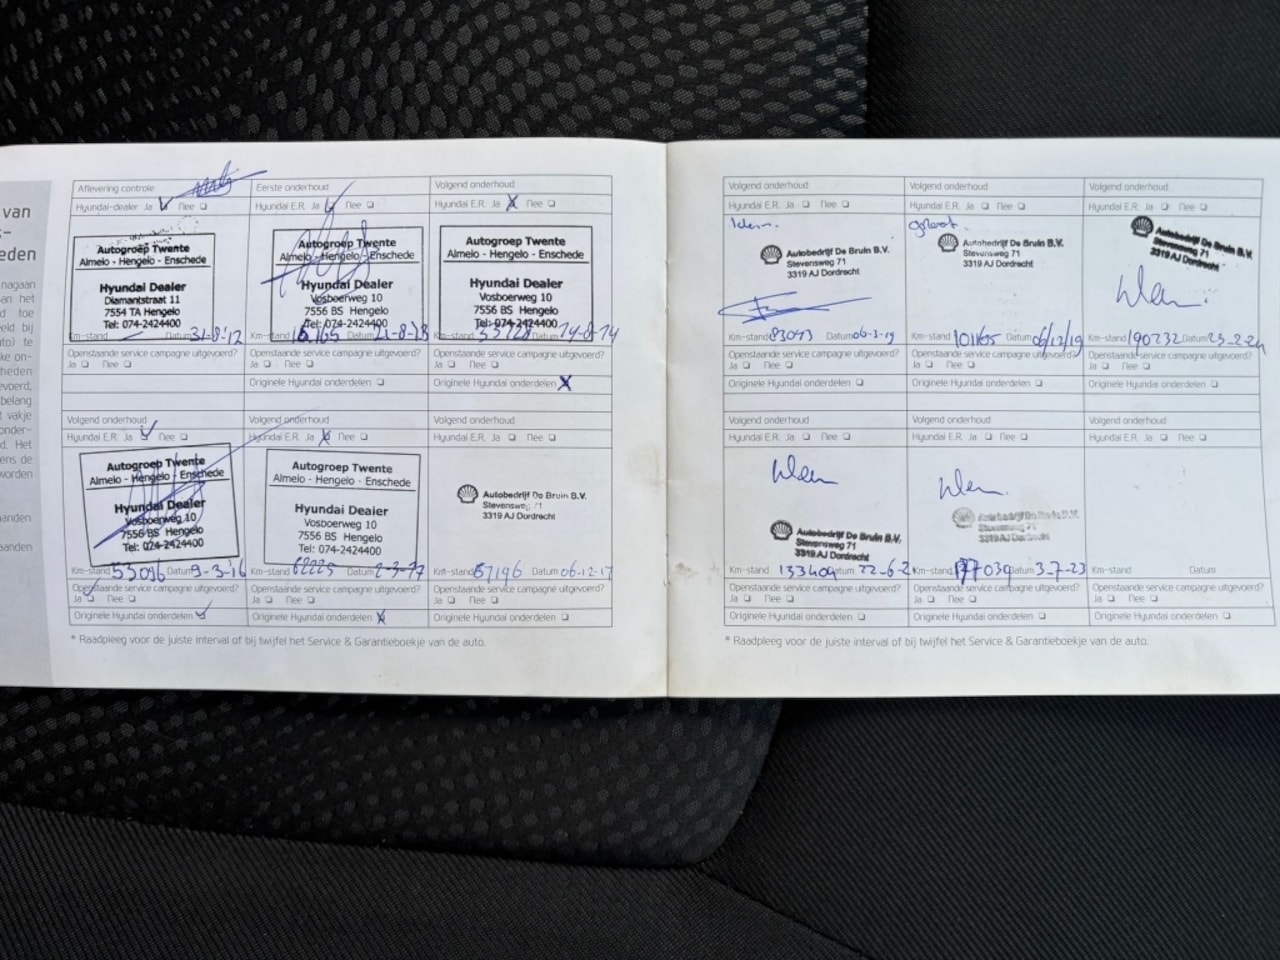 van
s-
eden
nagaan
an het
d toe
eld bij
uto) te
ke on-
heden
evoerd,
belang
t vakje
onder-
d. Het
ens de
worden
aanden
aanden
Aflevering controle
Hyundai-dealer Ja Nee
Autogroep Twente
Almelo - Hengelo - Enschede
Hyundai Dealer
Diamantstraat 11
7554 TA Hengelo
Tel: 074-2424400
Km-stand Datum 31-8-12
Openstaande service campagne uitgevoerd?
Ja Nee
Eerste onderhoud
Hyundai E.R. Ja Nee
Autogroep Twente
Almelo - Hengelo - Enschede
Hyundai Dealer
Vosboerweg 10
7556 BS Hengelo
Tel: 074-2424400
Km-stand Datum
Openstaande service campagne uitgevoerd?
Ja Nee
Originele Hyundai onderdelen
Volgend onderhoud
Hyundai E.R. Ja X Nee
Autogroep Twente
Almelo - Hengelo - Enschede
Hyundai Dealer
Vosboerweg 10
7556 BS Hengelo
Tel: 074-2424400
Km-stand Datum 14-8-14
Openstaande service campagne uitgevoerd?
Ja Nee
Originele Hyundai onderdelen X
Volgend onderhoud
Hyundai E.R. Ja Nee
Autogroep Twente
Almelo - Hengelo - Enschede
Hyundai Dealer
Vosboerweg 10
7556 BS Hengelo
Tel: 074-2424400
Km-stand 53096 Datum 9-3-16
Openstaande service campagne uitgevoerd?
Ja Nee
Originele Hyundai onderdelen
Volgend onderhoud
Hyundai E.R. Ja X Nee
Autogroep Twente
Almelo - Hengelo - Enschede
Hyundai Dealer
Vosboerweg 10
7556 BS Hengelo
Tel: 074-2424400
Km-stand 62225 Datum 2-3-17
Openstaande service campagne uitgevoerd?
Ja Nee
Originele Hyundai onderdelen X
Volgend onderhoud
Hyundai E.R. Ja Nee
Autobedrijf De Bruin B.V.
Stevensweg 71
3319 AJ Dordrecht
Km-stand 67196 Datum 06-12-17
Openstaande service campagne uitgevoerd?
Ja Nee
Originele Hyundai onderdelen
* Raadpleeg voor de juiste interval of bij twijfel het Service & Garantieboekje van de auto.
Volgend onderhoud
Hyundai E.R. Ja Nee
Autobedrijf De Bruin B.V.
Stevensweg 71
3319 AJ Dordrecht
Km-stand 83093 Datum 06-3-19
Openstaande service campagne uitgevoerd?
Ja Nee
Originele Hyundai onderdelen
Volgend onderhoud
Hyundai E.R. Ja Nee
Autobedrijf De Bruin B.V.
Stevensweg 71
3319 AJ Dordrecht
Km-stand 101165 Datum 06/12/19
Openstaande service campagne uitgevoerd?
Ja Nee
Originele Hyundai onderdelen
Volgend onderhoud
Hyundai E.R. Ja Nee
Autobedrijf De Bruin B.V.
Stevensweg 71
3319 AJ Dordrecht
Km-stand 190232 Datum 23-2-24
Openstaande service campagne uitgevoerd?
Ja Nee
Originele Hyundai onderdelen
Volgend onderhoud
Hyundai E.R. Ja Nee
Autobedrijf De Bruin B.V.
Stevensweg 71
3319 AJ Dordrecht
Km-stand 133404 Datum 22-6-2
Openstaande service campagne uitgevoerd?
Ja Nee
Originele Hyundai onderdelen
Volgend onderhoud
Hyundai E.R. Ja Nee
Autobedrijf De Bruin B.V.
Stevensweg 71
3319 AJ Dordrecht
Km-stand 177039 Datum 3-7-23
Openstaande service campagne uitgevoerd?
Ja Nee
Originele Hyundai onderdelen
Volgend onderhoud
Hyundai E.R. Ja Nee
Km-stand Datum
Openstaande service campagne uitgevoerd?
Ja Nee
Originele Hyundai onderdelen
* Raadpleeg voor de juiste interval of bij twijfel het Service & Garantieboekje van de auto.